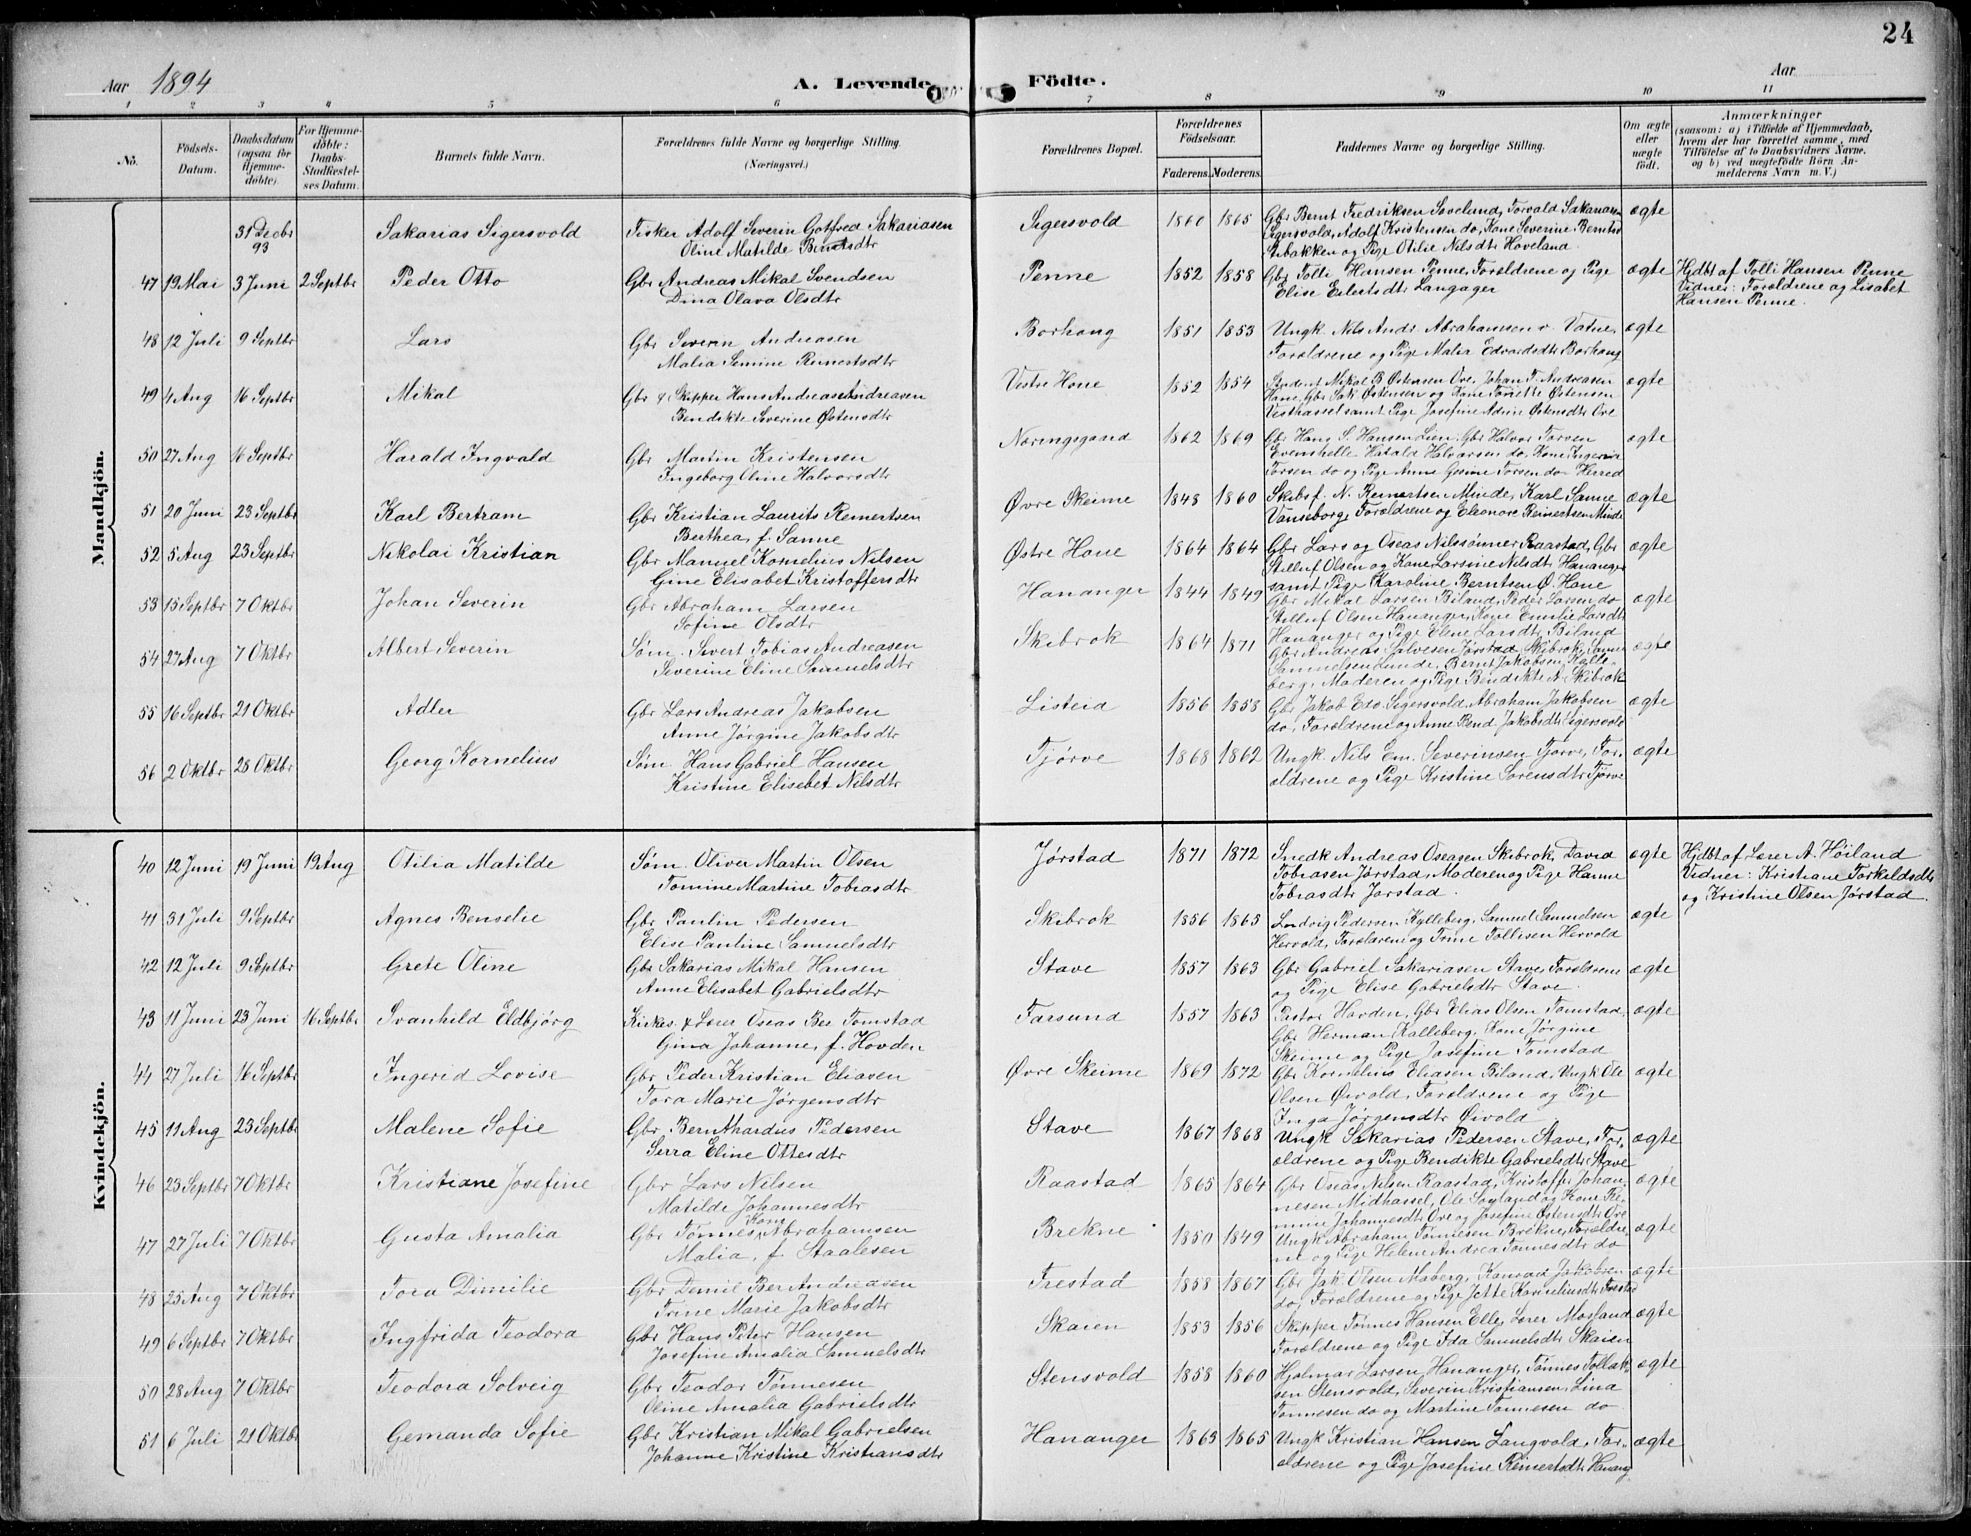 24
Aar 1894
A. Levende Födte.
Aar
1 2 3 4 5 6 7 8 9 10 11
No.
Födsels-Datum.
Daabsdatum (ogsaa for Hjemmedöbte).
For Hjemmedöbte: Daabs-Stadfæstelses Datum.
Barnets fulde Navn.
Forældrenes fulde Navne og borgerlige Stilling. (Næringsvei.)
Forældrenes Bopæl.
Forældrenes Födselsaar.
Faderens. Moderens.
Faddernes Navne og borgerlige Stilling.
Om ægte eller uægte födt.
Anmærkninger
(saasom: a) i Tilfælde af Hjemmedaab, hvem der har forrettet samme, med Tilföielse af to Daabsvidners Navne, og b) ved uægtefödte Börn Anmelderens Navn m. V.)
Mandkjön.
31 Decbr 93 Sakarias Sigersvold Fisker Adolf Severin Gotfred Sakariasen Sigersvold 1860 1865 Gbr Bernt Fredriksen Sævelund, Torvald Sakariasen ægte
Oline Matilde Berntsdtr Sigersvold, Adolf Kristensen do, Kone Severine Berntsd
Stbakken og Pige Otilie Nilsdtr Hoveland
47 19 Mai 3 Juni 2 Septbr Peder Otto Gbr Andreas Mikal Svendsen Penne 1852 1858 Gbr Tolli Hansen Penne, Forældrene og Pige ægte Hjdbt af Tolli Hansen Penne
Dina Olava Olsdtr Elise Eilertsdtr Langager Vidner: Forældrene og Lisabet
Hansen Penne.
48 12 Juli 9 Septbr Lars Gbr Severin Andreasen Borhaug 1851 1853 Ungk. Nils Andr. Abrahamsen v. Vatne, ægte
Malia Semine Reinertsdtr Forældrene og Pige Malia Edvardsdtr Borhaug
49 4 Aug 16 Septbr Mikal Gbr & Skipper Hans Andreas Andreasen Vestre Hone 1852 1854 Student Mikal B Østensen Ore, Johan F. Andreasen ægte
Bendikte Severine Østensdtr Hone, Gbr Jak Østensen og Kone Torette Østensen
Vesthassel samt Pige Josefine Adine Østensdtr Ore
50 27 Aug 16 Septbr Harald Ingvald Gbr Martin Kristensen Næringsgaard 1862 1869 Gbr Hans S. Hansen Lien, Gbr Halvor Torsen ægte
Ingeborg Oline Halvorsdtr Evenshelle, Harald Halvorsen do, Kone Ingerid
Torsen do og Pige Anne Gesine Torsen do Herred
51 20 Juni 23 Septbr Karl Bertram Gbr Kristian Laurits Reinertsen Øvre Skeime 1848 1860 Skibsf. N. Reinertsen Minde, Karl Sanne ægte
Berthea, f. Sanne Vanseborg, Forældrene og Eleonore Reinertsen Minde
52 5 Aug 23 Septbr Nikolai Kristian Gbr Manuel Kornelius Nilsen Østre Hone 1864 1864 Gbr Lars og Oseas Nilssønner Raastad, Gbr ægte
Gine Elisabet Kristoffersdtr Stilluf Olsen og Kone Larsine Nilsdtr Hananger
samt Pige Karoline Berntsen Ø. Hone
53 15 Septbr 7 Oktbr Johan Severin Gbr Abraham Larsen Hananger 1844 1849 Gbr Mikal Larsen Biland, Peder Larsen do ægte
Sofine Olsdtr Stilluf Olsen Hananger, Kone Emilie Larsdtr
Hananger og Pige Elene Larsdtr Biland
54 27 Aug 7 Oktbr Albert Severin Søm. Sivert Tobias Andreasen Skibrok 1864 1871 Gbr Andreas Salvesen Jørstad Skibrok, ægte
Severine Eline Samuelsdtr Samuelsen Bernt Jakobsen Kylleberg, Moderen og Pige Bendikte A. Skibrok
55 16 Septbr 21 Oktbr Adler Gbr Lars Andreas Jakobsen Listeid 1856 1858 Gbr Jakob Edv. Sigersvold, Abraham Jakobsen ægte
Anne Jørgine Jakobsdtr do, Forældrene og Anne Bend Jakobsdtr Sigersvold
56 2 Oktbr 28 Oktbr Georg Kornelius Søm Hans Gabriel Hansen Tjørve 1868 1862 Ungk Nils Em. Severinsen Tjørve, For- ægte
Kristine Elisebet Nilsdtr ældrene og Pige Kristine Sorensdtr Tjørve
Kvindekjön.
40 12 Juni 19 Juni 19 Aug Otilia Matilde Søm. Oliver Martin Olsen Jørstad 1871 1872 Snedk Andreas Oseasen Skibrok, David ægte Hjdbt af Lærer A. Høiland
Tomine Martine Tobiasdtr Tobiasen Jørstad, Moderen og Pige Hanne Vidner: Kristiane Torkeldsdtr
Tobiasdtr Jørstad. og Kristine Olsen Jørstad.
41 31 Juli 9 Septbr Agnes Benselie Gbr Paulin Pedersen Skibrok 1856 1865 Ludvig Pedersen Kylleberg, Samuel Samuelsen ægte
Elise Pauline Samuelsdtr Hervold, Forældrene og Trine Tollisen Hervold
42 12 Juli 9 Septbr Grete Oline Gbr Sakarias Mikal Hansen Stave 1857 1863 Gbr Gabriel Sakariasen Stave, Forældrene ægte
Anne Elisabet Gabrielsdtr og Pige Elise Gabrielsdtr Stave.
43 11 Juni 23 Juni 16 Septbr Svanhild Eldbjørg Kirkes. & Lærer Oseas Ber Tomstad Farsund 1857 1863 Pastor Hovden, Gbr Elias Olsen Tomstad, ægte
Gina Johanne, f. Hovden Gbr Herman Kalleberg, Kone Jørgine
Skeime og Pige Josefine Tomstad
44 27 Juli 16 Septbr Ingerid Lovise Gbr Peder Kristian Eliasen Øvre Skeime 1869 1872 Gbr Kornelius Eliasen Biland, Ungk Ole ægte
Tora Marie Jørgensdtr Olsen Øivold, Forældrene og Pige
Inga Jørgensdtr Øivold
45 11 Aug 23 Septbr Malene Sofie Gbr Bernthardus Pedersen Stave 1867 1868 Ungk Sakarias Pedersen Stave, For- ægte
Serra Eline Ottesdtr ældrene og Pige Bendikte Gabrielsdtr Stave
46 23 Septbr 7 Oktbr Kristiane Josefine Gbr Lars Nilsen Raastad 1865 1864 Gbr Oseas Nilsen Raastad, Kristoffer Johan- ægte
Matilde Johannesdtr nesen Midhassel, Ole Søyland og Kone Johannesdtr Ore og Josefine Østensdtr Ore
47 27 Juli 7 Oktbr Gusta Amalia Gbr Tønnes Korn. Abrahamsen Brekne 1850 1849 Ungk Abraham Tønnesen Brekne, Forældre- ægte
Malia, f. Staalesen ne og Pige Helene Andrea Tønnesdtr do
48 25 Aug 7 Oktbr Tora Dimilie Gbr Demil Ber Andreasen Frestad 1858 1867 Gbr Jak. Olsen Maberg, Konrad Jakobsen ægte
Trine Marie Jakobsdtr do, Forældrene og Pige Jette Korneliusdtr Frestad
49 6 Septbr 7 Oktbr Ingfrida Teodora Gbr Hans Peter Hansen Skaien 1853 1856 Skipper Tønnes Hansen Elle, Lærer Mosland ægte
Josefine Amalia Samuelsdtr Forældrene og Pige Ida Samuelsdtr Skaien
50 28 Aug 7 Oktbr Teodora Solveig Gbr Teodor Tønnesen Stensvold 1858 1860 Hjalmar Larsen Hananger, Tønnes Tollak- ægte
Oline Amalia Gabrielsdtr sen Stensvold, Severin Kristiansen, Lina
Tønnesen do og Martine Tønnesen do
51 6 Juli 21 Oktbr Gemanda Sofie Gbr Kristian Mikal Gabrielsen Hananger 1863 1865 Ungk Kristian Hansen Langvold, For- ægte
Johanne Kristine Kristiansdtr ældrene og Pige Josefine Reinertsdtr Hanang